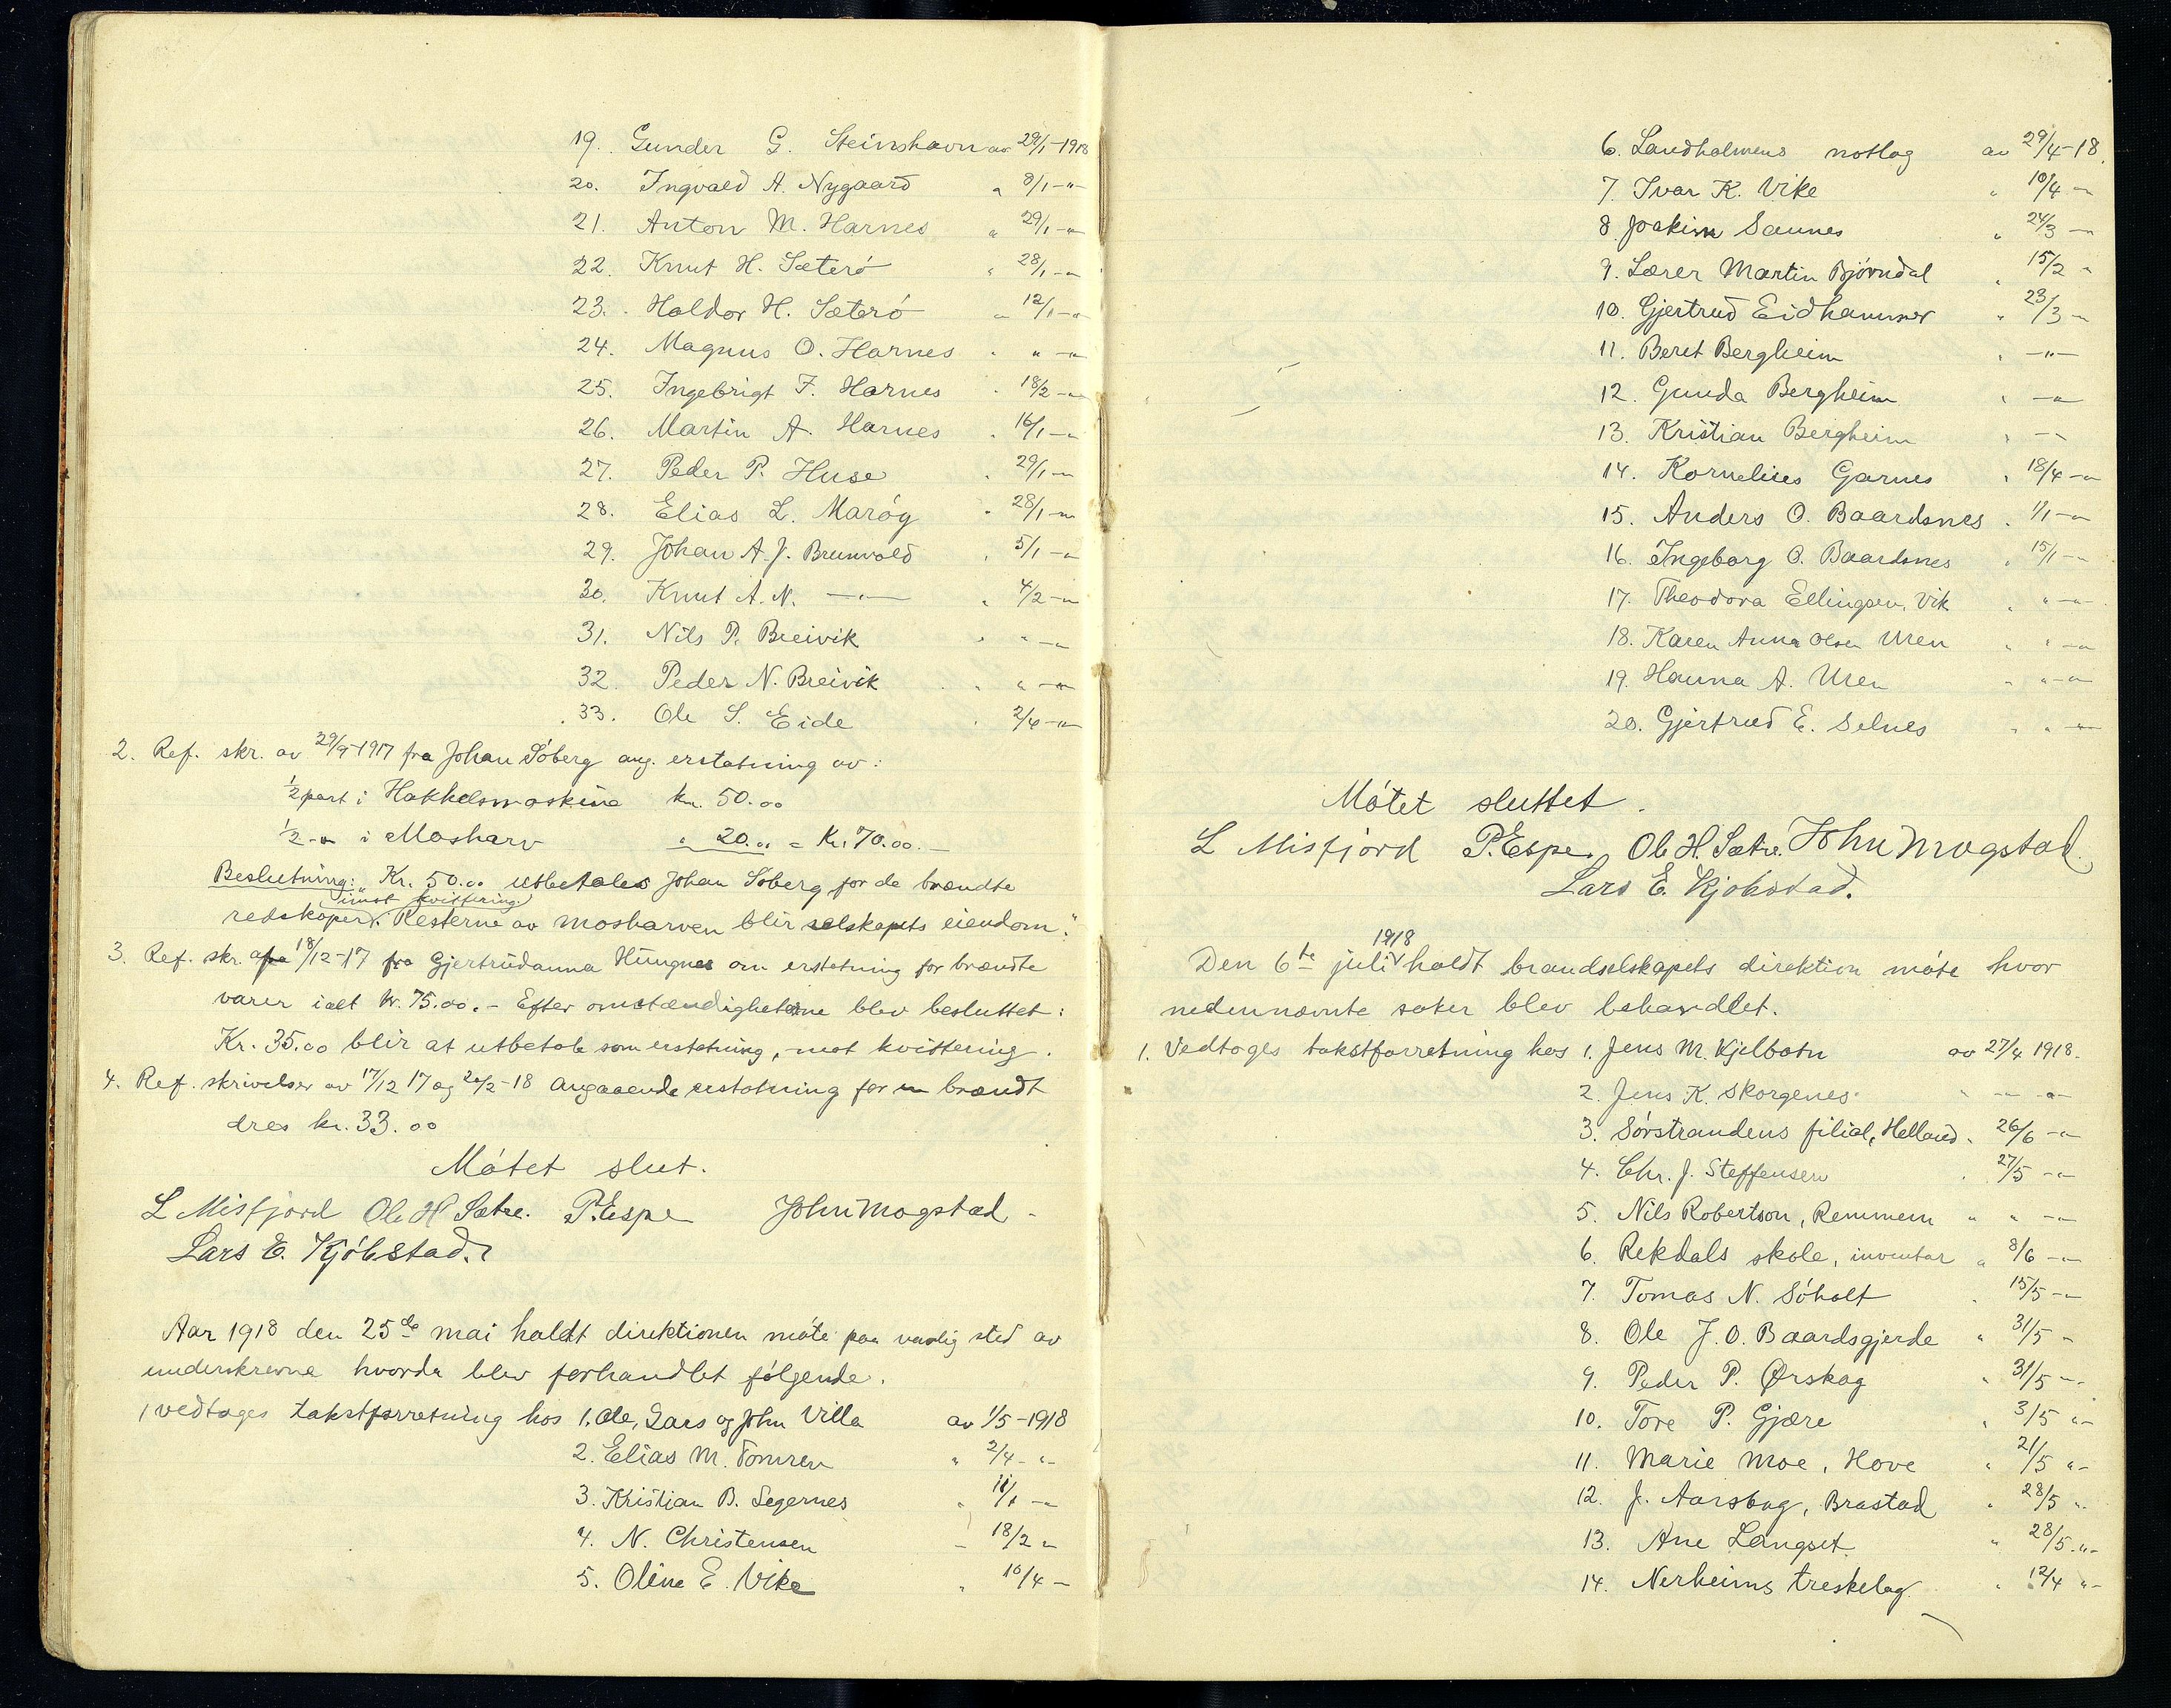 19. Gunder G. Steinshavn av 29/1-1918
20. Ingvald A. Nygaard " 8/1-"-
21. Anton M. Harnes " 29/1-"-
22. Knut H. Sæterö " 28/1-"-
23. Haldor H. Sæterö " 12/1-"-
24. Magnus O. Harnes " " -"-
25. Ingebrigt F. Harnes " 18/2-"-
26. Martin A. Harnes " 16/1-"-
27. Peder P. Huse " 29/1-"-
28. Elias L. Maröy " 28/1-"-
29. Johan A. J. Brunvold " 5/1-"-
30. Knut A. N. -"- " 4/2-"-
31. Nils P. Breivik " " -"-
32. Peder N. Breivik " " -"-
33. Ole S. Eide " 2/4-"-
2. Ref. skr. av 29/9-1917 fra Johan Söberg ang. erstatning av:
1/2 part i Hakkelsmaskine kr. 50.00
1/2 -"- i Mosharv " 20.00 = Kr. 70.00.-
Beslutning: "Kr. 50.00 utbetales Johan Söberg for de brændte
(imot kvittering)
redskaper. Resterne av mosharven blir selskapets eiendom."
3. Ref. skr. af 18/12-17 fra Gjertrudanna Hungnes om erstatning for brændte
varer ialt kr. 75.00.- Efter omstændigheterne blev besluttet:
Kr. 35.00 blir at utbetale som erstatning, mot kvittering.
4. Ref. skrivelser av 17/12 17 og 20/2-18 angaaende erstatning for en brændt
dres kr. 33.00
Mötet slut.
L Misfjord Ole H Sætre. P. Espe John Magstad
Lars E. Kjöbstad.
Aar 1918 den 25de mai holdt direktionen möte paa vanlig sted av
underskrevne hvorda blev forhandlet følgende.
1 vedtoges takstforretning hos 1. Ole, Lars og John Villa av 1/5-1918
2. Elias M. Tomren " 2/4-"-
3. Kristian B. Legernes " 11/1-"-
4. N. Christensen - 18/2 "
5. Oline E. Vike " 10/4 -
6. Sandholmens notlag av 29/4-18.
7. Ivar K. Vike " 10/4 -"-
8 Joakim Saunes " 24/3 -"-
9. Lærer Martin Bjørndal " 15/2 "
10. Gjertrud Eidhammer " 23/3 -"-
11. Beret Bergheim " -"-
12. Gunda Bergheim " -"-
13. Kristian Bergheim " -"-
14. Kornelius Garnes " 18/4-"-
15. Anders O. Baardsnes " 1/1-"-
16. Ingeborg O. Baardsnes " 15/1-"-
17. Theodora Ellingsen, Vik " " -"-
18. Karen Anna Olsen Uren " " -"-
19. Hanna A. Uren " " -"-
20. Gjertrud E. Selnes " " -"-
Mötet sluttet.
L Misfjord P. Espe. Ole H. Sætre. John Magstad.
Lars E. Kjöbstad.
1918
Den 6te juli holdt brandselskapets direktion möte hvor
nedennævnte saker blev behandlet.
1. Vedtoges takstforretning hos 1. Jens M. Kjelbotn av 27/4 1918.
2. Jens K. Skorgenes " -"- -"-
3. Sörstrandens filial, Helland " 26/6 -"-
4. Chr. J. Steffensen " 27/5 -"-
5. Nils Robertson, Remmem " " -"-
6. Rekdals skole, inventar " 8/6 -"-
7. Tomas N. Söholt " 15/5 -"-
8. Ole J. O. Baardsgjerde " 31/5 "
9. Peder P. Ørskog " 31/5 -"-
10. Tore P. Gjære " 3/5 "-
11. Marie Moe, Hove " 21/5 "-
12. J. Aarsbog, Brastad " 28/5 "-
13. Ane Langset " 28/5 -"-
14. Nerheims treskelag " 12/4 "-